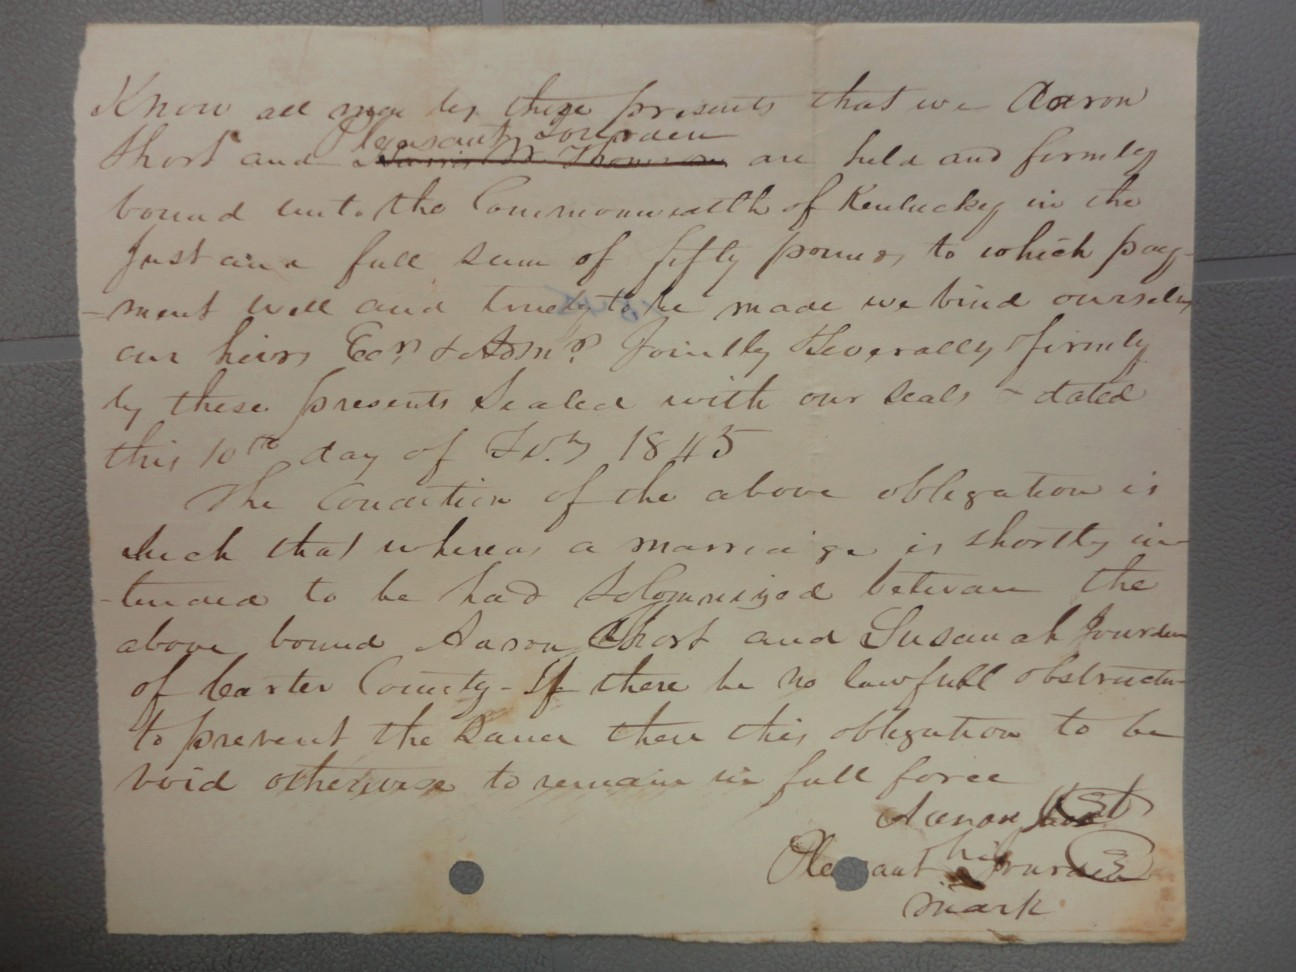 Know all men by these presents that we Aaron
Pleasant Jourden
Short and are held and firmly
bound unto the Commonwealth of Kentucky in the
Just and full sum of fifty pounds, to which pay-
-ment well and truly to be made we bind ourselves
our heirs Ecrs & Admrs Jointly Severally & firmly
by these presents Sealed with our seals & dated
this 10th day of Feby 1845
The Condition of the above obligation is
such that whereas a marriage is shortly in
-tended to be had Solemnized between the
above bound Aaron Short and Susanah Jourden
of Carter County - If there be no lawfull obstruction
to prevent the same then this obligation to be
void otherwise to remain in full force
Aaron Short
his
Pleasant Jourden
mark